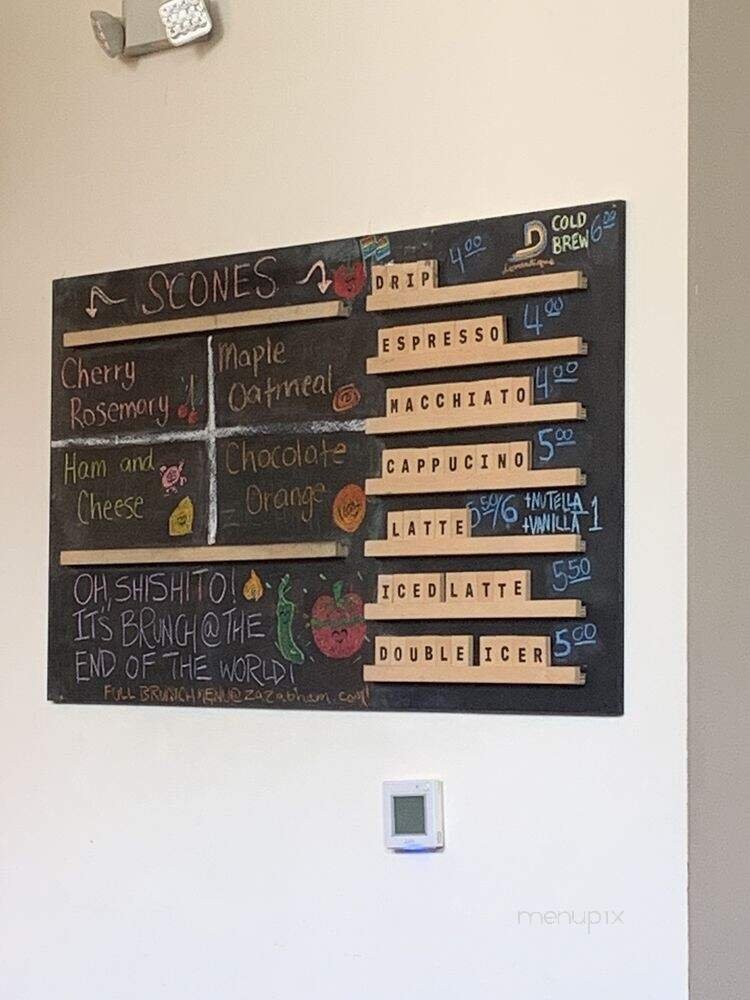 SCONES
Cherry
Rosemary
Maple
Oatmeal
Ham and
Cheese
Chocolate
Orange
OH, SHISHITO!
IT'S BRUNCH @ THE
END OF THE WORLD!
FULL BRUNCH MENU@zazabham.com!
COLD
BREW 6.00
DRIP 4.00
ESPRESSO 4.00
MACCHIATO 4.00
CAPPUCINO 5.00
LATTE 5.50/6 +NUTELLA
+VANILLA 1
ICED LATTE 5.50
DOUBLE ICER 5.00
menupix